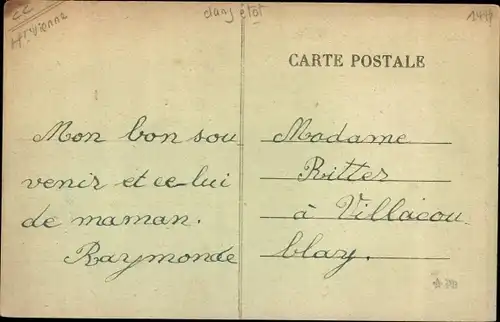 CC
Hte Vienne
dans état
CARTE POSTALE
Mon bon sou
venir et ce lui
de maman.
Raymonde
Madame
Ritter
à Villacou
blay.